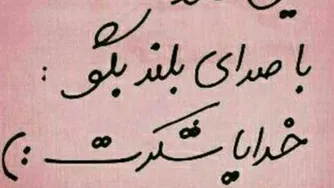 با صدای بلند بگو :
خدایا شکرت :)